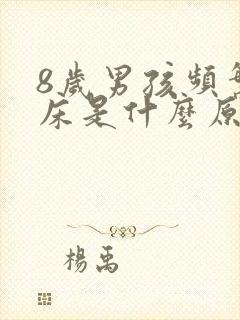 8歲男孩頻
床是什麼原
楊禹